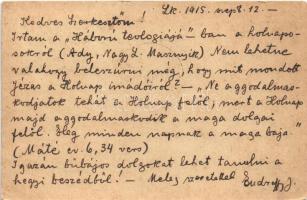 Lk. 1915. sept. 12. —
Kedves Szerkesztőm!
Irtam a „Háború teologiájá"-ban a holnapo-
sokról (Ady, Nagy L. ) Nem lehetne
valahogy beleszurni még, hogy mit mondott
Jézus a Holnap imádóiról? — „Ne aggodalmas-
kodjatok tehát a Holnap felöl; mert a Holnap
majd aggodalmaskodik a maga dolgai
felöl. Elég minden napnak a maga baja."
(Máté ev. 6, 34 vers)
Igazán bűbájos dolgokat lehet tanulni a
hegyi beszédből! — Meleg szeretettel